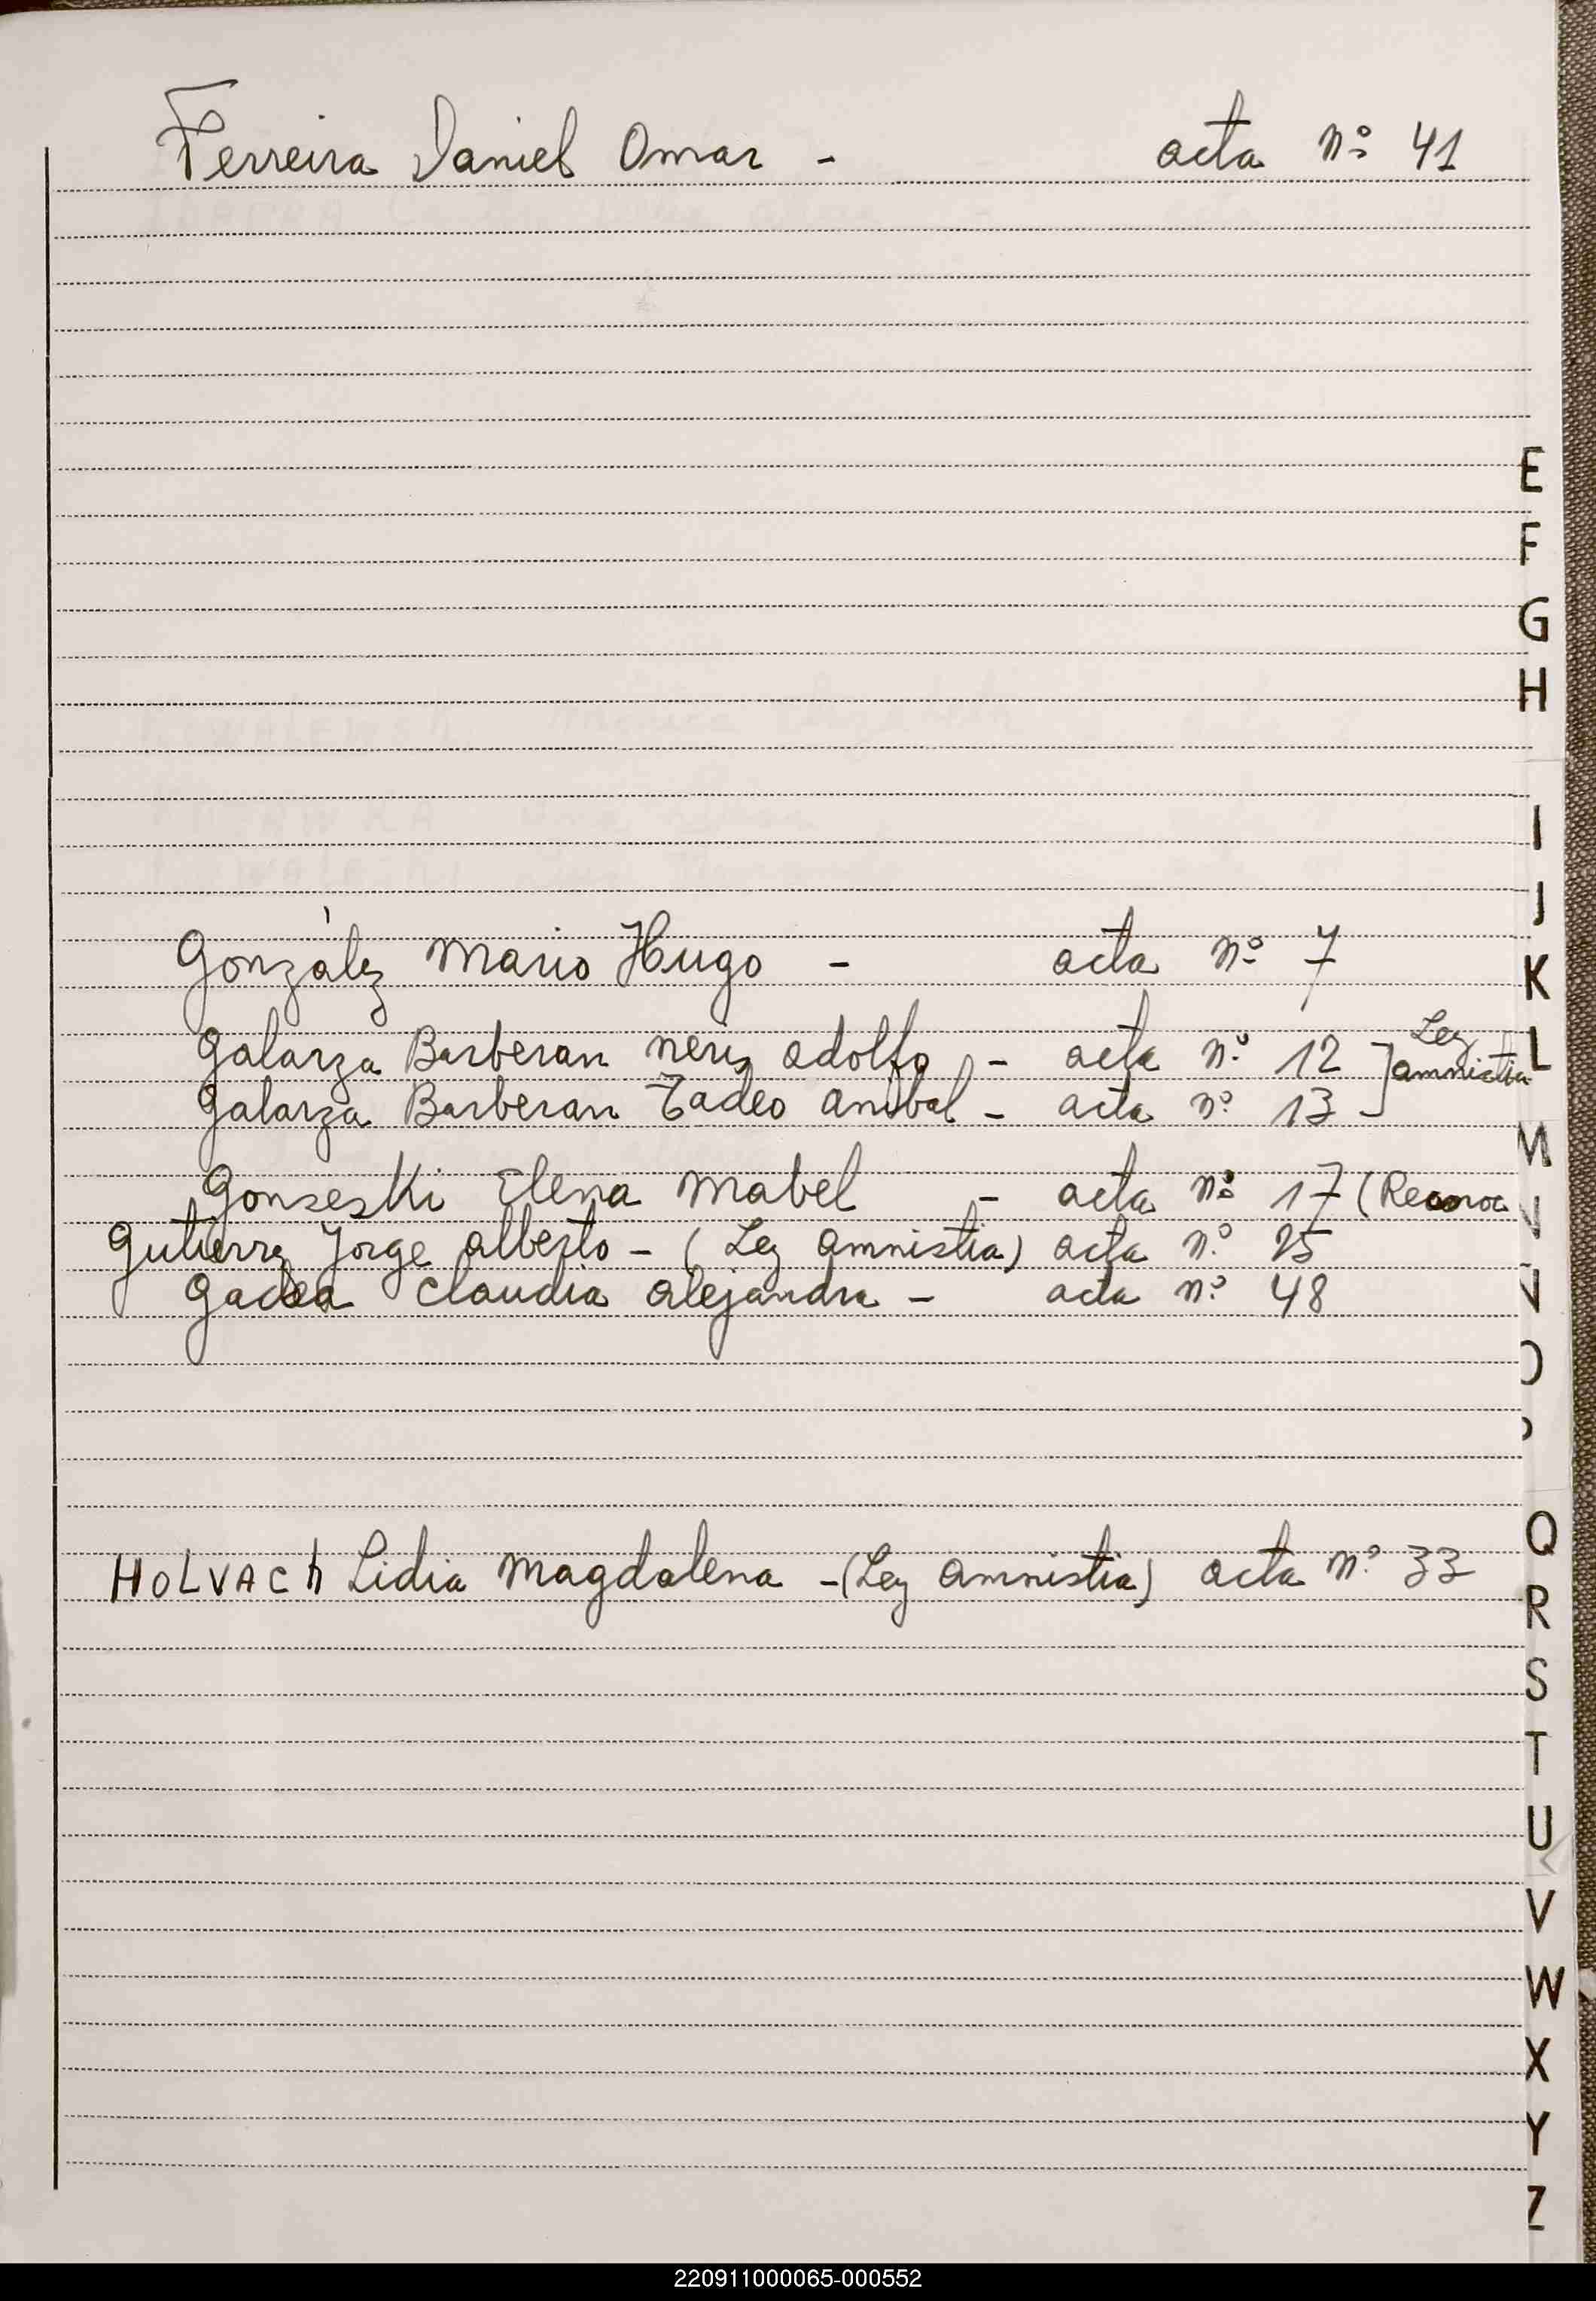 Ferreira Daniel Omar - acta nº 41
E
F
G
H
I
J
K
L
M
N
O
Q
R
S
T
U
V
W
X
Y
Z
González Mario Hugo - acta nº 7
Galarza Barberan Neris Adolfo - acta nº 12 ] Ley amnistia
Galarza Barberan Tadeo Anibal - acta nº 13
Gonseski Elena Mabel - acta nº 17 (Reconoc
Gutierrz Jorge Alberto - (Ley Amnistia) acta nº 25
Gadea Claudia Alejandra - acta nº 48
HOLVACh Lidia Magdalena - (Ley Amnistia) acta nº 33
220911000065-000552